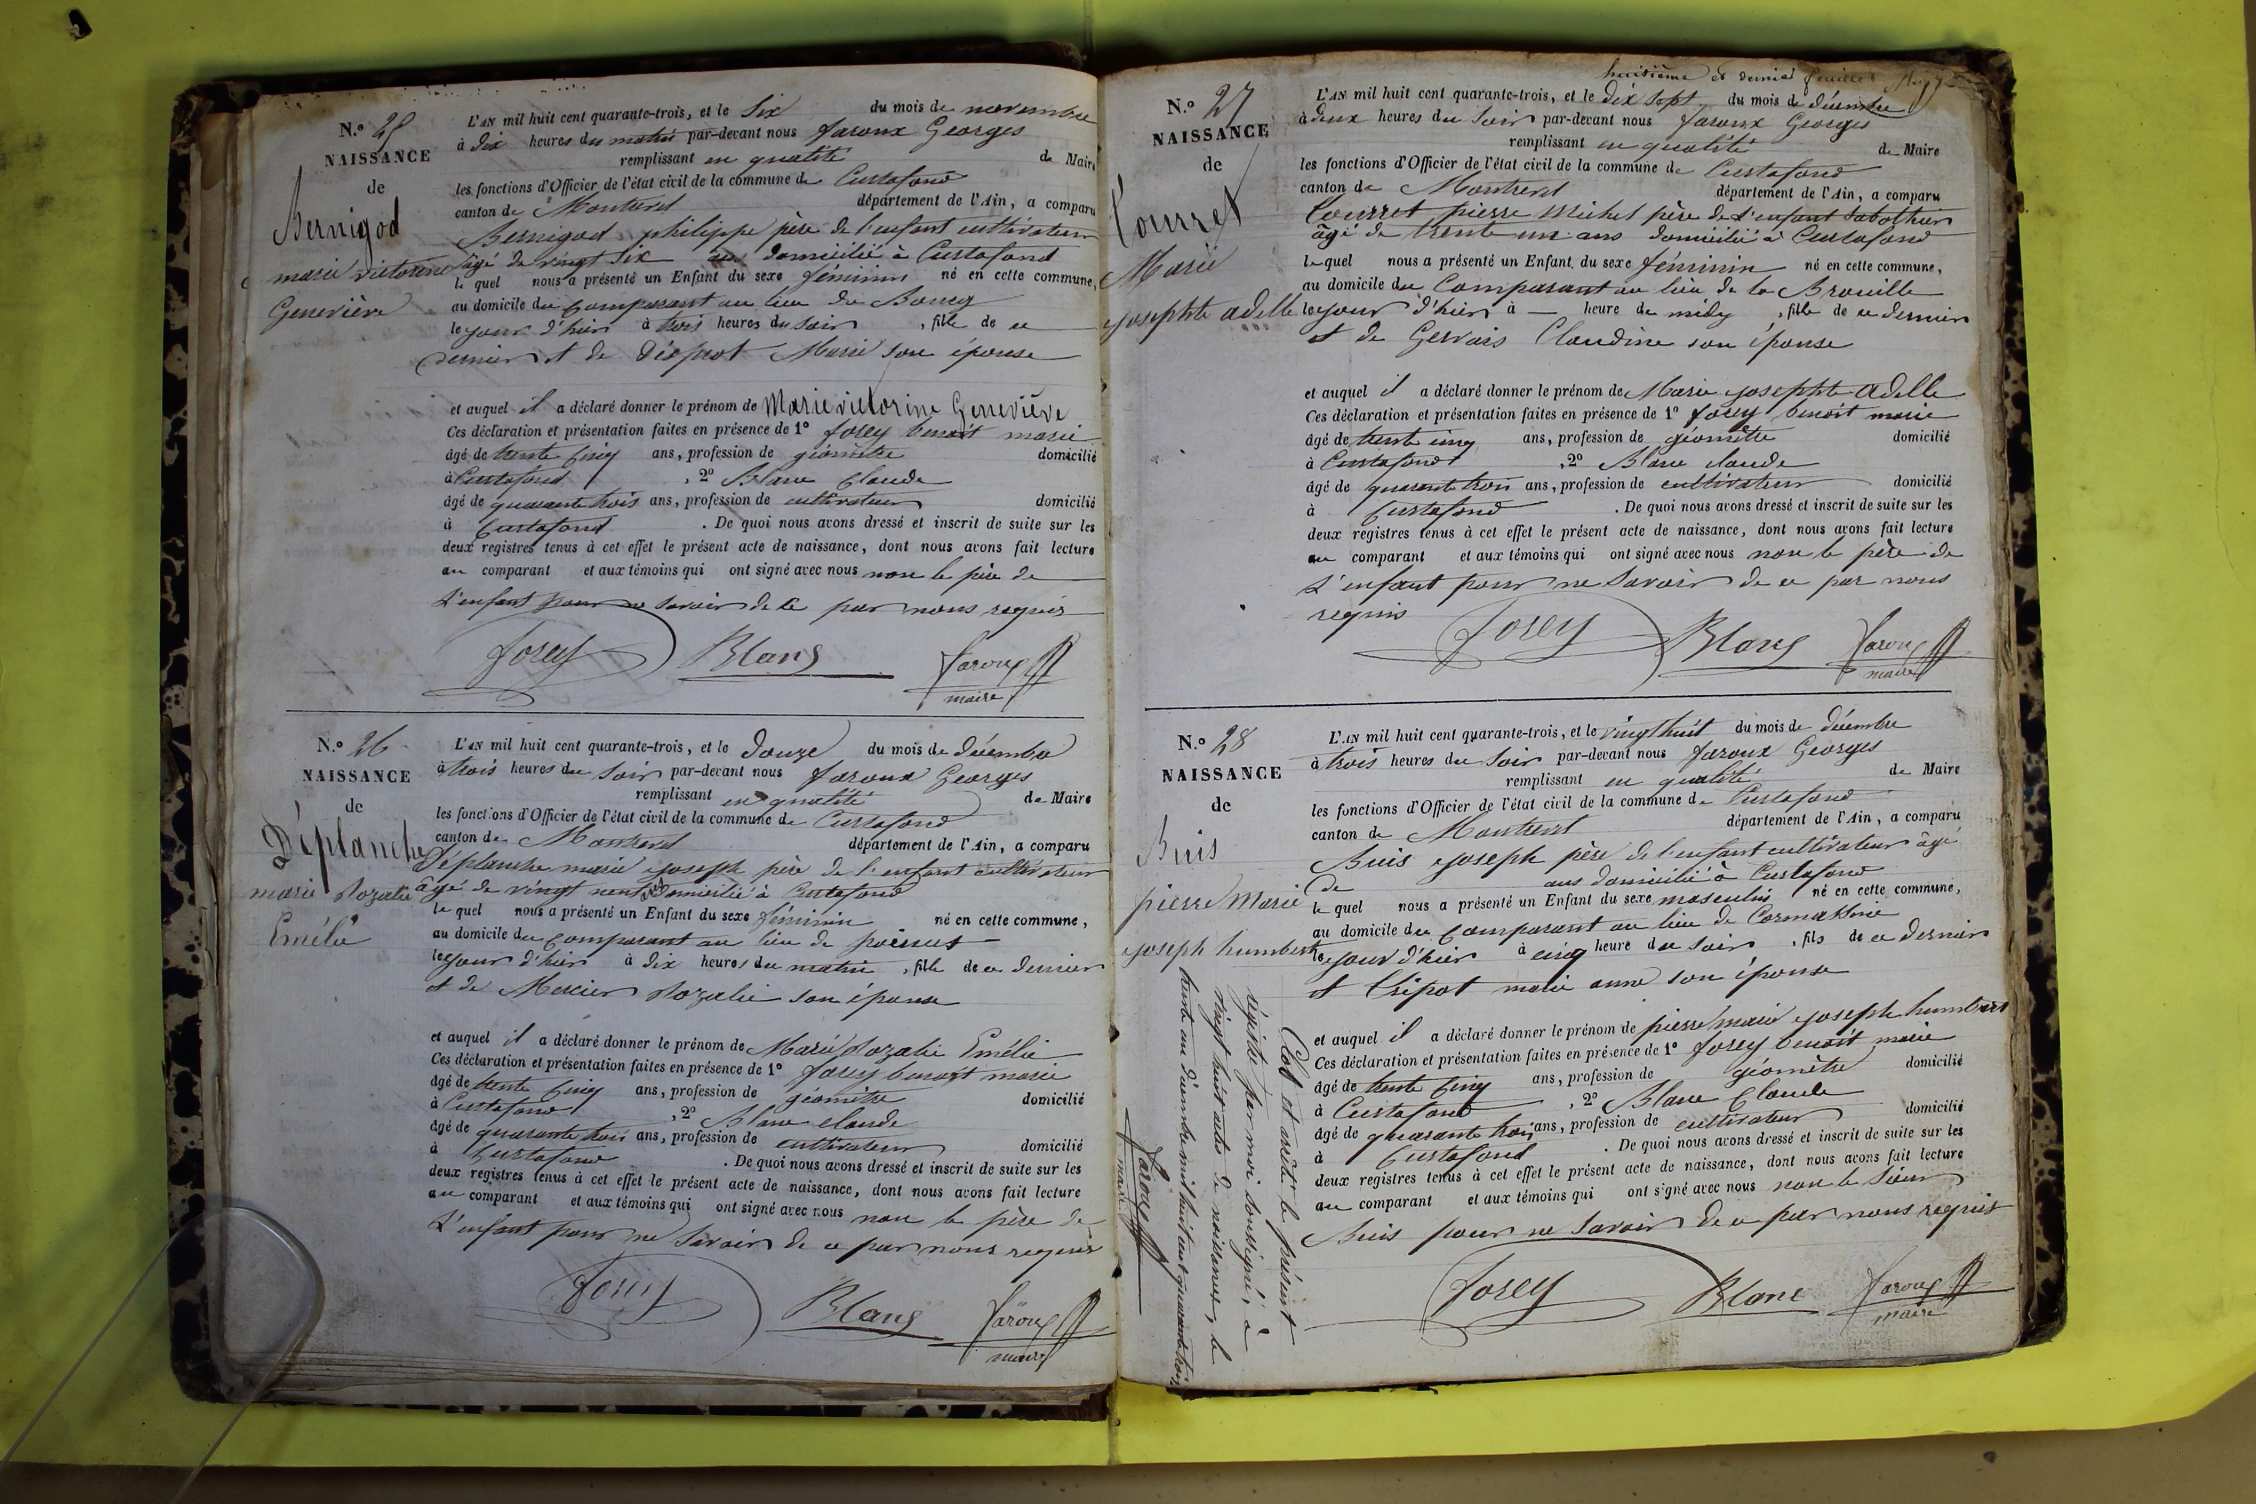 N.º 25
NAISSANCE
de
Bernigod
marie victorine
Geneviève
L'AN mil huit cent quarante-trois, et le Six du mois de novembre
à dix heures du matin par-devant nous faroux Georges
remplissant en qualité de Maire
les fonctions d'Officier de l'état civil de la commune de Curtafond
canton de Montrevel département de l'Ain, a comparu
Bernigod philippe père de l'enfant cultivateur
âgé de vingt six ans domicilié à Curtafond
le quel nous a présenté un Enfant du sexe féminin né en cette commune,
au domicile du comparant au lieu du Bourg
le jour d'hier à trois heures du soir , fille de ce
dernier et de Marie son épouse
et auquel il a déclaré donner le prénom de Marie victorine Geneviève
Ces déclaration et présentation faites en présence de 1º forey benoit marie
âgé de trente cinq ans, profession de géomètre domicilié
à Curtafond , 2º Blanc Claude
âgé de quarante trois ans, profession de cultivateur domicilié
à Curtafond . De quoi nous avons dressé et inscrit de suite sur les
deux registres tenus à cet effet le présent acte de naissance, dont nous avons fait lecture
au comparant et aux témoins qui ont signé avec nous non le père de
L'enfant pour ne savoir de ce par nous requis
forey Blanc faroux
maire
N.º 26
NAISSANCE
de
Déplanche
marie Rozalie
Emélie
L'AN mil huit cent quarante-trois, et le douze du mois de décembre
à trois heures du soir par-devant nous faroux Georges
remplissant en qualité de Maire
les fonctions d'Officier de l'état civil de la commune de Curtafond
canton de Montrevel département de l'Ain, a comparu
Déplanche marie joseph père de l'enfant cultivateur
âgé de vingt neuf ans domicilié à Curtafond
le quel nous a présenté un Enfant du sexe féminin né en cette commune,
au domicile du comparant au lieu de
le jour d'hier à dix heures du matin , fille de ce dernier
et de Mercier Rozalie son épouse
et auquel il a déclaré donner le prénom de Marie Rozalie Emélie
Ces déclaration et présentation faites en présence de 1º forey benoit marie
âgé de trente cinq ans, profession de géomètre domicilié
à Curtafond , 2º Blanc claude
âgé de quarante trois ans, profession de cultivateur domicilié
à Curtafond . De quoi nous avons dressé et inscrit de suite sur les
deux registres tenus à cet effet le présent acte de naissance, dont nous avons fait lecture
au comparant et aux témoins qui ont signé avec nous non le père de
L'enfant pour ne savoir de ce par nous requis
forey Blanc faroux
maire
huitième et dernier feuillet
N.º 27
NAISSANCE
de
Tourret
Marie
josephte adelle
L'AN mil huit cent quarante-trois, et le dix sept du mois de décembre
à deux heures du soir par-devant nous faroux Georges
remplissant en qualité de Maire
les fonctions d'Officier de l'état civil de la commune de Curtafond
canton de Montrevel département de l'Ain, a comparu
Tourret pierre Michel père de l'enfant sabottier
âgé de trente un ans domicilié à Curtafond
le quel nous a présenté un Enfant du sexe féminin né en cette commune,
au domicile du Comparant au lieu de la Brouille
le jour d'hier à — heure de midy , fille de ce dernier
et de Gervais Claudine son épouse
et auquel il a déclaré donner le prénom de Marie josephte adelle
Ces déclaration et présentation faites en présence de 1º forey benoit marie
âgé de trente cinq ans, profession de géomètre domicilié
à Curtafond , 2º Blanc claude
âgé de quarante trois ans, profession de cultivateur domicilié
à Curtafond . De quoi nous avons dressé et inscrit de suite sur les
deux registres tenus à cet effet le présent acte de naissance, dont nous avons fait lecture
au comparant et aux témoins qui ont signé avec nous non le père de
L'enfant pour ne savoir de ce par nous
requis
forey Blanc faroux
maire
N.º 28
NAISSANCE
de
Buis
pierre Marie
joseph humbert
L'AN mil huit cent quarante-trois, et le vingt huit du mois de décembre
à trois heures du soir par-devant nous faroux Georges
remplissant en qualité de Maire
les fonctions d'Officier de l'état civil de la commune de Curtafond
canton de Montrevel département de l'Ain, a comparu
Buis joseph père de l'enfant cultivateur âgé
de ans domicilié à Curtafond
le quel nous a présenté un Enfant du sexe masculin né en cette commune,
au domicile du comparant au lieu de
le jour d'hier à cinq heure du soir , fils de ce dernier
et Crépot marie anne son épouse
et auquel il a déclaré donner le prénom de pierre marie joseph humbert
Ces déclaration et présentation faites en présence de 1º forey benoit marie
âgé de trente cinq ans, profession de géomètre domicilié
à Curtafond , 2º Blanc Claude
âgé de quarante trois ans, profession de cultivateur domicilié
à Curtafond . De quoi nous avons dressé et inscrit de suite sur les
deux registres tenus à cet effet le présent acte de naissance, dont nous avons fait lecture
au comparant et aux témoins qui ont signé avec nous non le sieur
Buis pour ne savoir de ce par nous requis
forey Blanc faroux
maire
Clos et arrêté le présent
régistre par moi soussigné, à
vingt huit actes de naissances, le
trente un décembre mil huit cent quarante trois
faroux
maire